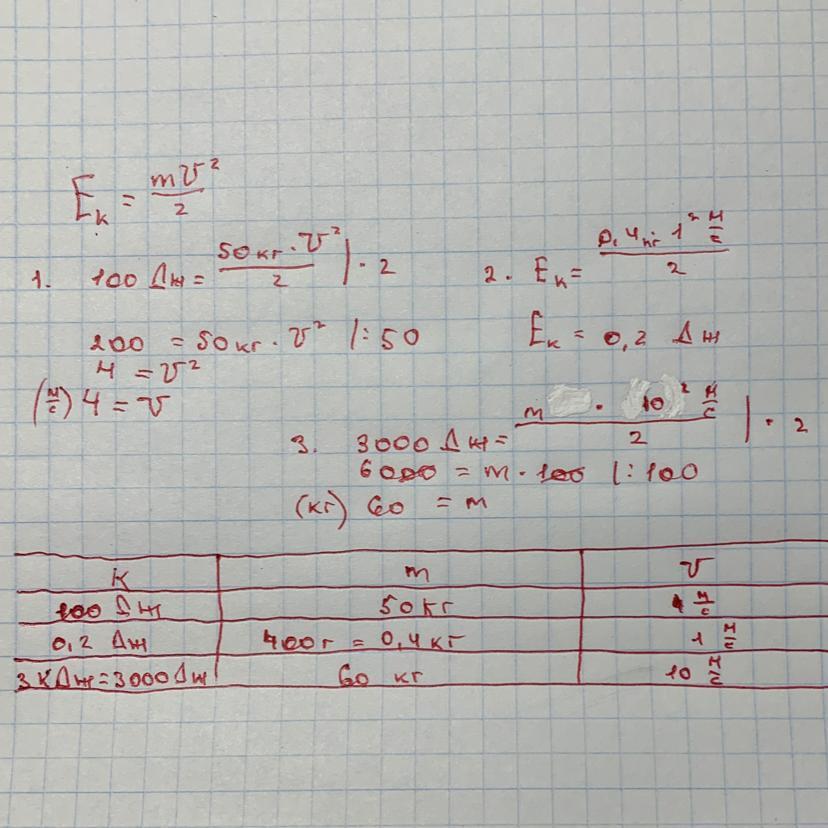 Eк = mv²/2
1. 100 Дж = 50 кг · v²/2 | · 2
200 = 50 кг · v² |: 50
4 = v²
(м/с) 4 = v
2. Eк = 0,4 кг · 1² м/с / 2
Eк = 0,2 Дж
3. 3000 Дж = m · 10² м/с / 2 | · 2
6000 = m · 100 |: 100
(кг) 60 = m
К m v
100 Дж 50 кг 4 м/с
0,2 Дж 400 г = 0,4 кг 1 м/с
3 КДж = 3000 Дж 60 кг 10 м/с